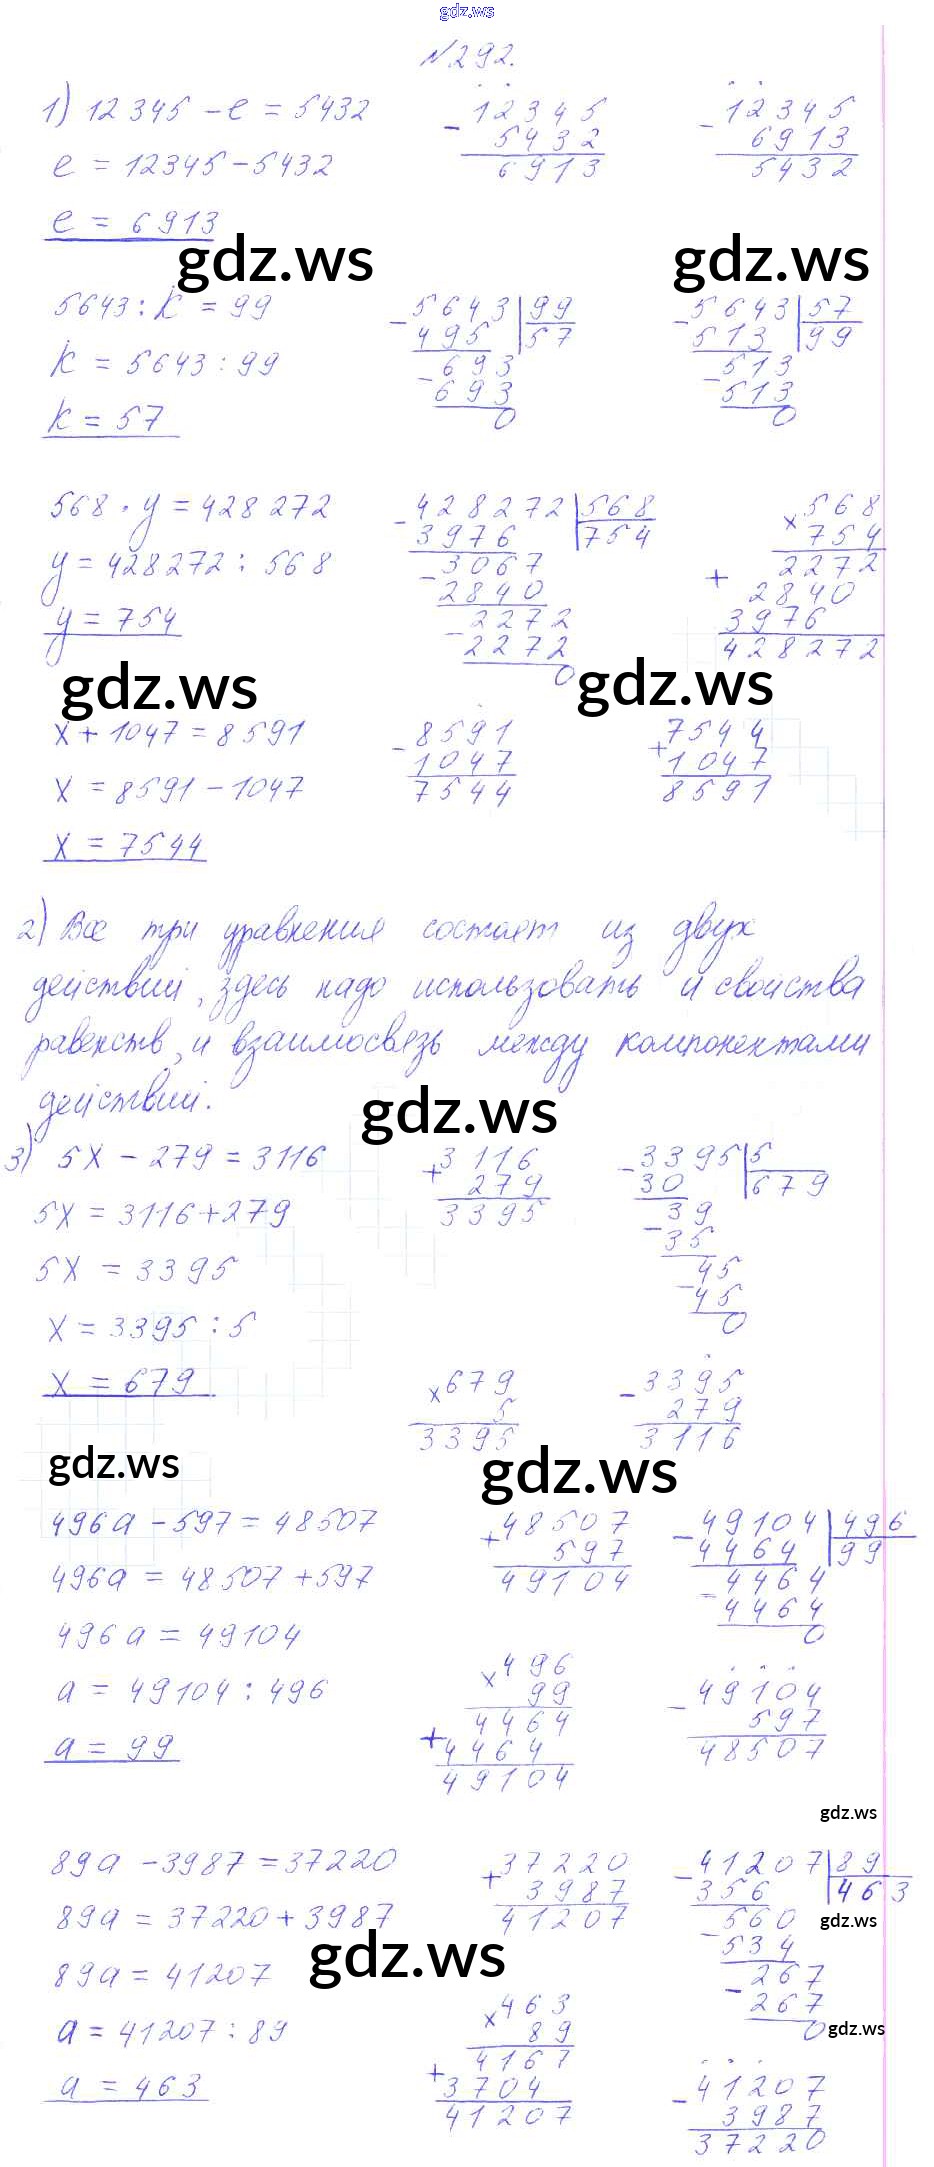 gdz.ws
№292.
1) 12345 - e = 5432
e = 12345 - 5432
e = 6913
12345
- 5432
6913
12345
- 6913
5432
gdz.ws gdz.ws
5643 : k = 99
k = 5643 : 99
k = 57
- 5643 | 99
495 | 57
- 693
693
0
- 5643 | 57
513 | 99
- 513
513
0
568 · y = 428 272
y = 428272 : 568
y = 754
- 428272 | 568
3976 | 754
- 3067
2840
- 2272
2272
0
× 568
754
2272
+ 2840
3976
428272
gdz.ws gdz.ws
x + 1047 = 8591
x = 8591 - 1047
x = 7544
- 8591
1047
7544
+ 7544
1047
8591
2) Все три уравнения состоят из двух
действий, здесь надо использовать и свойства
равенств, и взаимосвязь между компонентами
действий.
gdz.ws
3) 5x - 279 = 3116
5x = 3116 + 279
5x = 3395
x = 3395 : 5
x = 679
+ 3116
279
3395
- 3395 | 5
30 | 679
39
- 35
45
- 45
0
× 679
5
3395
- 3395
279
3116
gdz.ws gdz.ws
496a - 597 = 48507
496a = 48507 + 597
496a = 49104
a = 49104 : 496
a = 99
+ 48507
597
49104
- 49104 | 496
4464 | 99
- 4464
4464
0
× 496
99
4464
+ 4464
49104
- 49104
597
48507
gdz.ws
89a - 3987 = 37220
89a = 37220 + 3987
89a = 41207
a = 41207 : 89
a = 463
+ 37220
3987
41207
- 41207 | 89
356 | 463
- 560
534
- 267
267
0
gdz.ws
gdz.ws
gdz.ws
× 463
89
4167
+ 3704
41207
- 41207
3987
37220